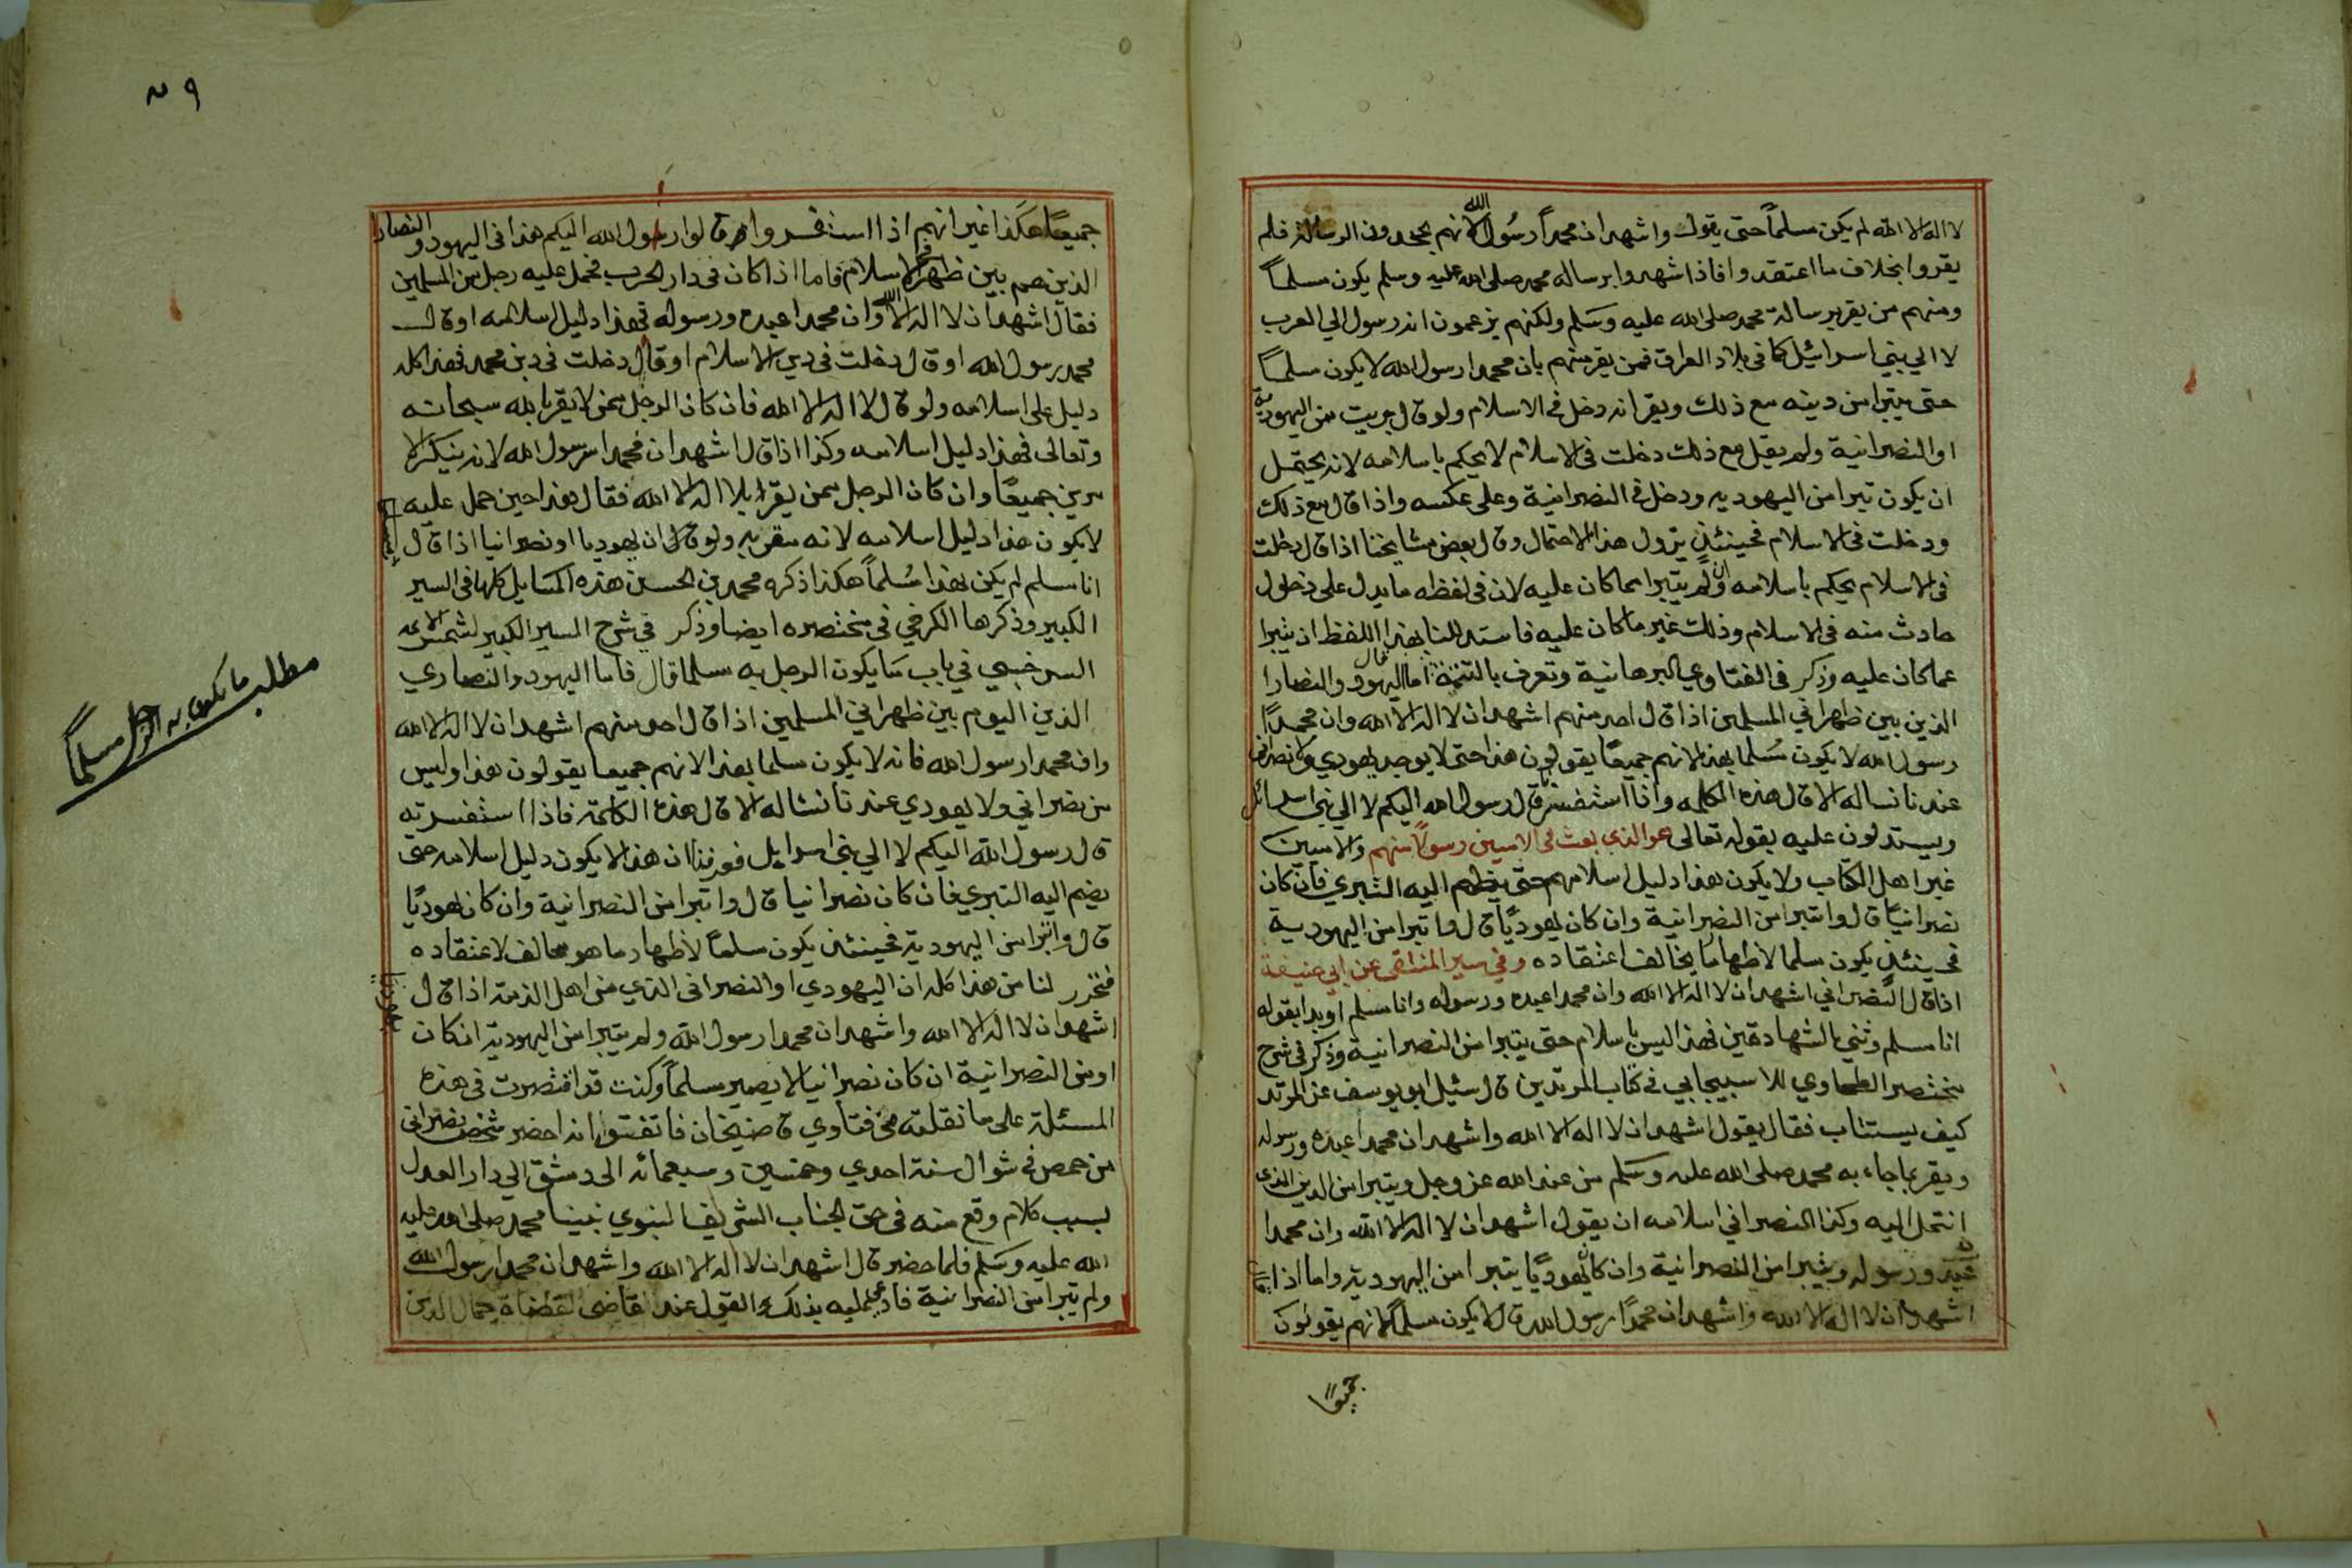 لا اله الا الله لم يكن مسلماً حتى يقول واشهد ان محمداً رسول الله لانهم يجحدون الرسالة فلم
يقروا بخلاف ما اعتقدوا فاذا شهدوا برساله محمد صلى الله عليه وسلم يكون مسلماً
ومنهم من يقر برسالة محمد صلى الله عليه وسلم ولكنهم يزعمون انه رسول الي العرب
لا الي بني اسرائيل كما في بلاد العراق فمن يقر منهم بان محمدا رسول الله لا يكون مسلماً
حتى يتبرا من دينه مع ذلك ويقر انه دخل في الاسلام ولو قال بريت من اليهودية
او النصرانية ولم يقل مع ذلك دخلت في الاسلام لا يحكم باسلامه لانه يحتمل
ان يكون تبرا من اليهوديه ودخل في النصرانية وعلى عكسه واذا قال مع ذلك
ودخلت في الاسلام فحينئذٍ يزول هذا الاحتمال وقال بعض مشايخنا اذا قال دخلت
في الاسلام يحكم باسلامه وان لم يتبرا مما كان عليه لان في لفظه ما يدل على دخول
حادث منه في الاسلام وذلك غير ما كان عليه فاستدللنا بهذا اللفظ ان يتبرا
عما كان عليه وذكر في الفتاوي البرهانية وتعرف بالتتمة قال اما اليهود والنصارا
الذين بين ظهراني المسلمين اذا قال احد منهم اشهد ان لا اله الا الله وان محمداً
رسول الله لا يكون مُسلما بهذا لانهم جميعًا يقولون هذا حتى لا يوجد يهودي ولا نصراني
عندنا نساله الا قال هذه الكلمه واذا استفسرته قال رسول الله اليكم لا الي بني اسرائل
ويستدلون عليه بقوله تعالى هو الذي بعث في الاميين رسولاً منهم والاميين
غير اهل الكتاب ولا يكون هذا دليل اسلامهم حتى ينظم اليه التبري فان كان
نصرانيًا قال واتبرا من النصرانية وان كان يهوديًا قال واتبرا من اليهودية
فحينئذٍ يكون مسلما لاظهار ما يخالف اعتقاده وفي سير المنتقى عن ابي حنيفة
اذا قال النصراني اشهد ان لا اله الا الله وان محمدا عبده ورسوله وانا مسلم او بدا بقوله
انا مسلم وثني بالشهادتين فهذا ليس باسلام حتى يتبرا من النصرانية وذكر في شرح
مختصر الطحاوي للاسبيجابي في كتاب المرتدين قال سئل ابو يوسف عن المرتد
كيف يستتاب فقال يقول اشهد ان لا اله الا الله واشهد ان محمدا عبده ورسوله
ويقر بما جاء به محمد صلى الله عليه وسلم من عند الله عز وجل ويتبرا من الدين الذي
انتحل اليه وكذا النصراني اسلامه ان يقول اشهد ان لا اله الا الله وان محمدا
عبده ورسوله ويتبرا من النصرانية وان كان يهوديًا يتبرا من اليهودية واما اذا
اشهد ان لا اله الا الله واشهد ان محمدًا رسول الله قال لا يكون مسلمًا لانهم يقولون
جميعًا
جميعًا هكذا غير انهم اذا استفسروا قالوا رسول الله اليكم هذا في اليهود والنصارا
الذين هم بين ظهر الاسلام فاما اذا كان في دار الحرب فحمل عليه رجل من المسلمين
فقال اشهد ان لا اله الا الله وان محمدا عبده ورسوله فهذا دليل اسلامه او قال
محمد رسول الله او قال دخلت في دين الاسلام او قال دخلت في دين محمد فهذا كله
دليل على اسلامه ولو قال لا اله الا الله فان كان الرجل ممن لا يقر بالله سبحانه
وتعالى فهذا دليل اسلامه وكذا اذا قال اشهد ان محمدا رسول الله لانه ينكر الا
مرين جميعًا وان كان الرجل ممن يقر بلا اله الا الله فقال هذا حين حمل عليه
لا يكون هذا دليل اسلامه لانه مقر به ولو قال ان يهوديا او نصرانيا اذا قال
انا مسلم لم يكن بهذا مُسلماً هكذا ذكره محمد بن الحسن هذه المسايل كلها في السير
الكبير وذكرها الكرخي في مختصره ايضا وذكر في شرح السير الكبير لشمس الائمه
السرخسي في باب ما يكون الرجل به مسلما قال فاما اليهود والنصاري
الذين اليوم بين ظهراني المسلمين اذا قال احد منهم اشهد ان لا اله الا الله
وان محمدا رسول الله فانه لا يكون مسلما بهذا لانهم جميعا يقولون هذا وليس
من نصراني ولا يهودي عندنا نساله الا قال هذه الكلمة فاذا استفسرته
قال رسول الله اليكم لا الي بني اسرايل فعرفنا ان هذا لا يكون دليل اسلامه حتى
يضم اليه التبري فان كان نصرانيا قال واتبرا من النصرانية وان كان يهوديًا
قال واتبرا من اليهودية فحينئذٍ يكون مسلماً لاظهار ما هو مخالف لاعتقاده
فتحرر لنا من هذا كله ان اليهودي او النصراني الذي من اهل الذمة اذا قال
اشهد ان لا اله الا الله واشهد ان محمدا رسول الله ولم يتبرا من اليهودية ان كان
او من النصرانية ان كان نصرانيا لا يصير مسلماً وكنت قد اقتصرت في هذه
المسئلة على ما نقلته من فتاوي قاضيخان فاتفق انه احضر شخص نصراني
من حمص في شوال سنة احدي وخمسين وسبعمائه الى دمشق الي دار العدل
بسبب كلام وقع منه في حق الجناب الشريف النبوي نبينا محمد صلى الله عليه
الله عليه وسلم فلما حضر قال اشهد ان لا اله الا الله واشهد ان محمدا رسول الله
ولم يتبرا من النصرانية فادعي عليه بذلك القول عند القاضي القضاة جمال الدين
يهوديا
مطلب ما يكون به الرجل مسلماً